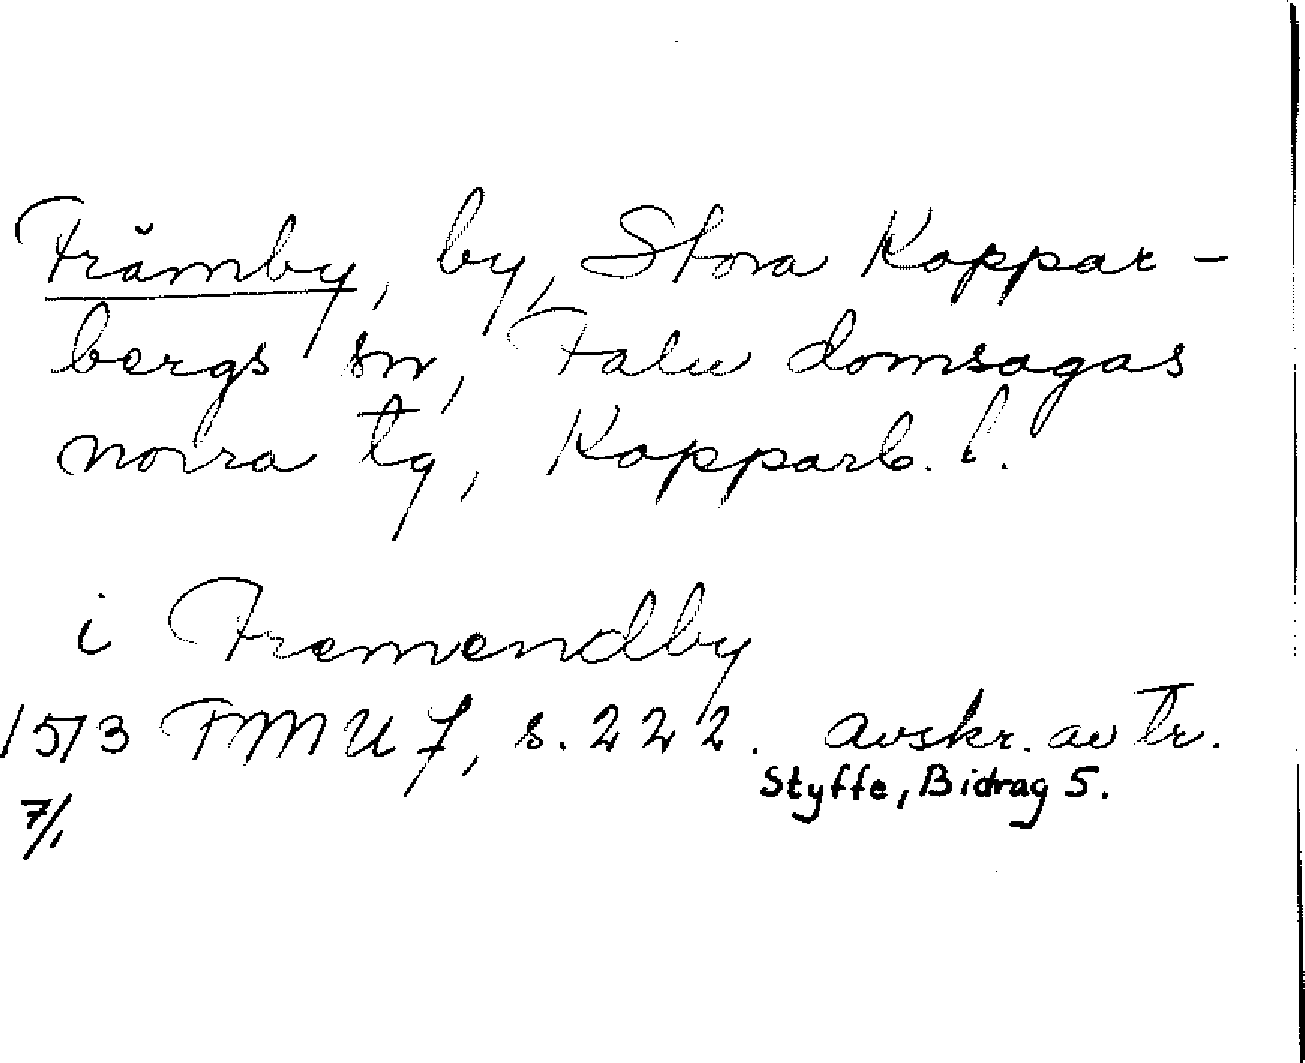 Främby, by, Stora Koppar-
bergs sn, Falu domsagas
norra tg, Kopparb. l.
i Fremendby
1513 FMU 7, s. 222. avskr. av tr.
Styffe, Bidrag 5.
7/1